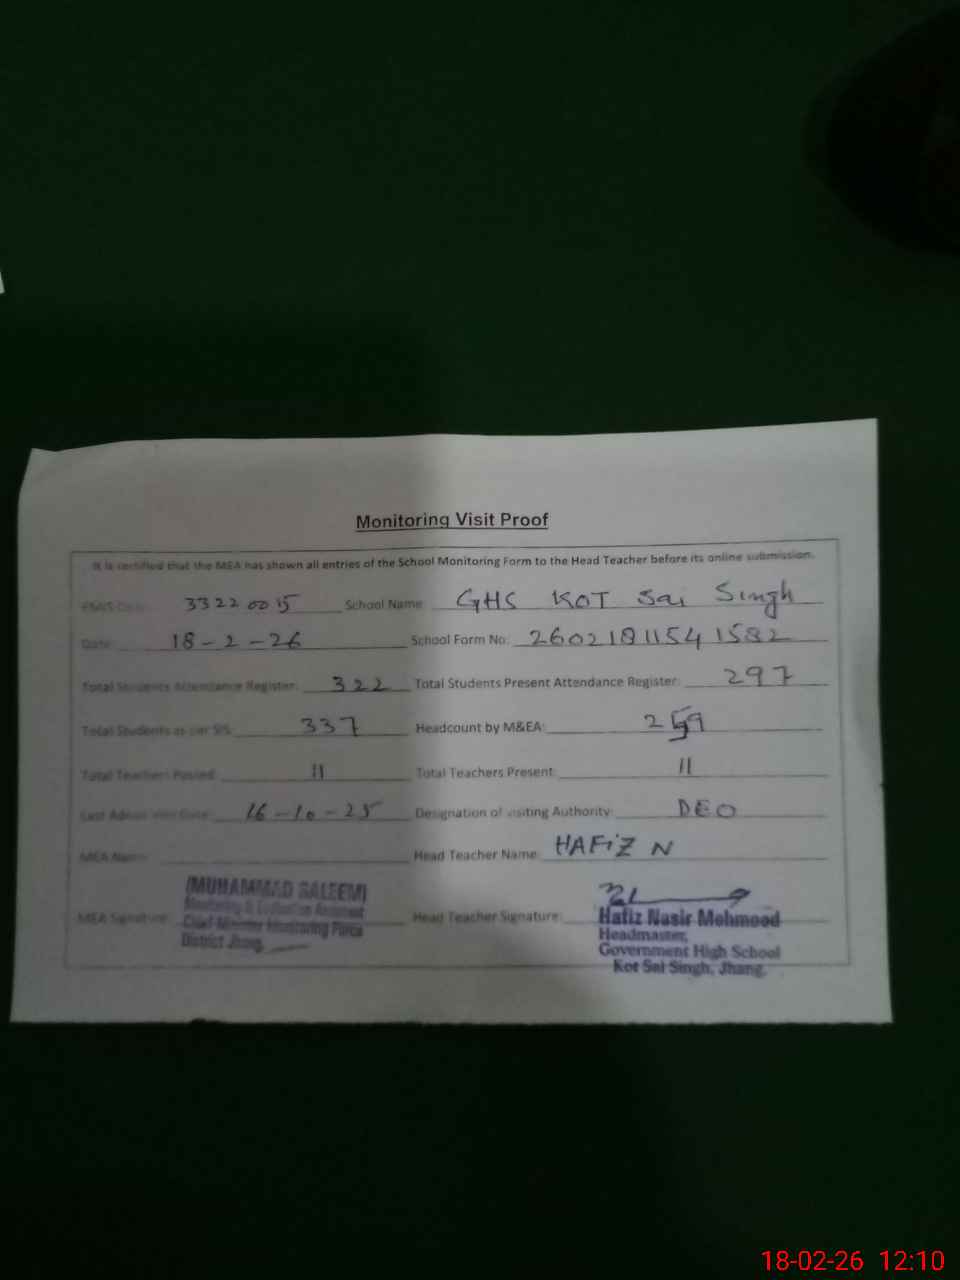 Monitoring Visit Proof
It is certified that the MEA has shown all entries of the School Monitoring Form to the Head Teacher before its online submission.
EMIS Code: 33220015 School Name: GHS KOT Sai Singh
Date: 18-2-26 School Form No: 26021811541582
Total Students Attendance Register: 322 Total Students Present Attendance Register: 297
Total Students as per SIS: 337 Headcount by M&EA:
Total Teachers Posted: 11 Total Teachers Present: 11
Last Admin Visit Date: 16-10-25 Designation of visiting Authority: DEO
MEA Name: Head Teacher Name: HAFiZ N
MEA Signature: Head Teacher Signature:
(MUHAMMAD SALEEM)
Monitoring & Evaluation Assistant
Chief Minister Monitoring Force
District Jhang.
Hafiz Nasir Mehmood
Headmaster,
Government High School
Kot Sai Singh, Jhang.
18-02-26 12:10